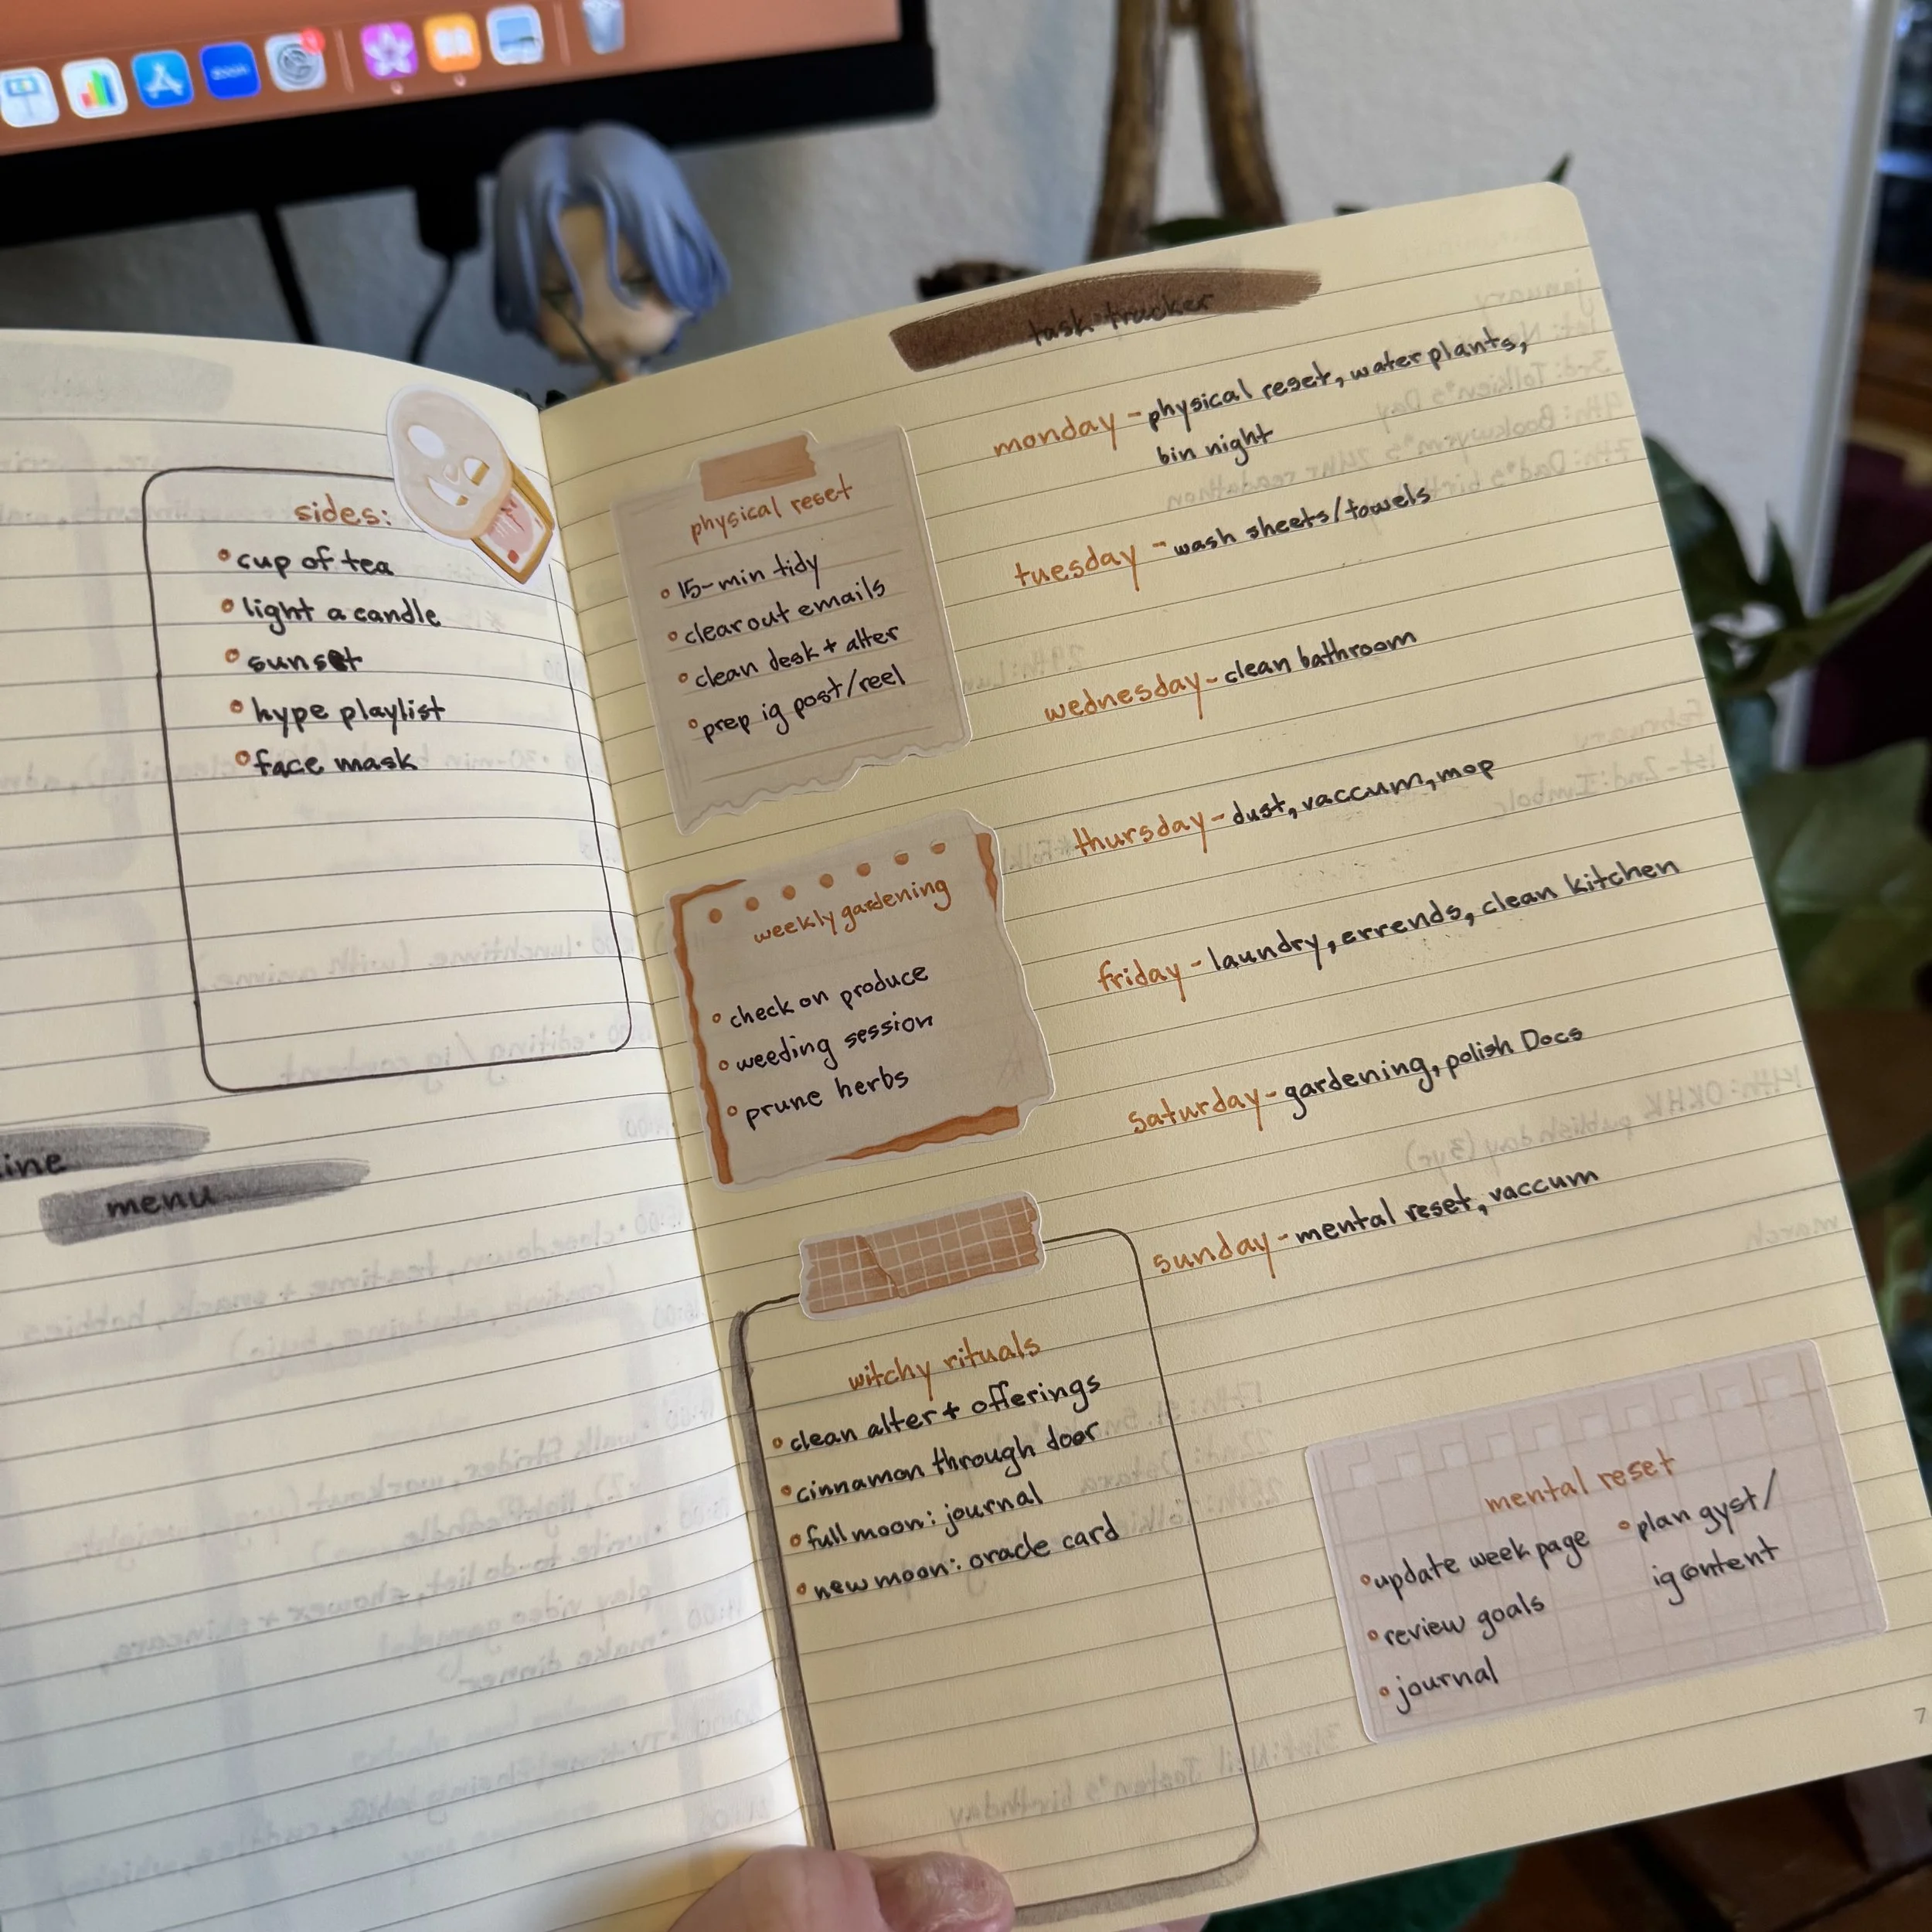 zoom
sides:
cup of tea
light a candle
sunset
hype playlist
face mask
ine
menu
task tracker
physical reset
15-min tidy
clear out emails
clean desk + alter
prep ig post/reel
weekly gardening
check on produce
weeding session
prune herbs
witchy rituals
clean alter + offerings
cinnamon through door
full moon: journal
new moon: oracle card
monday - physical reset, water plants,
bin night
tuesday - wash sheets/towels
wednesday - clean bathroom
thursday - dust, vaccum, mop
friday - laundry, errends, clean kitchen
saturday - gardening, polish Docs
sunday - mental reset, vaccum
mental reset
update week page
review goals
journal
plan gyst/
ig content
7